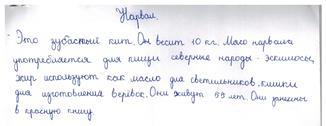 Нарвал.
Это зубастый кит. Он весит 10 кг. Мясо нарвала
употребляется для пищи северные народы - эскимосы,
жир используют как масло для светильников, кишки
для изготовления верёвок. Они живут 55 лет. Они занесены
в красную книгу.